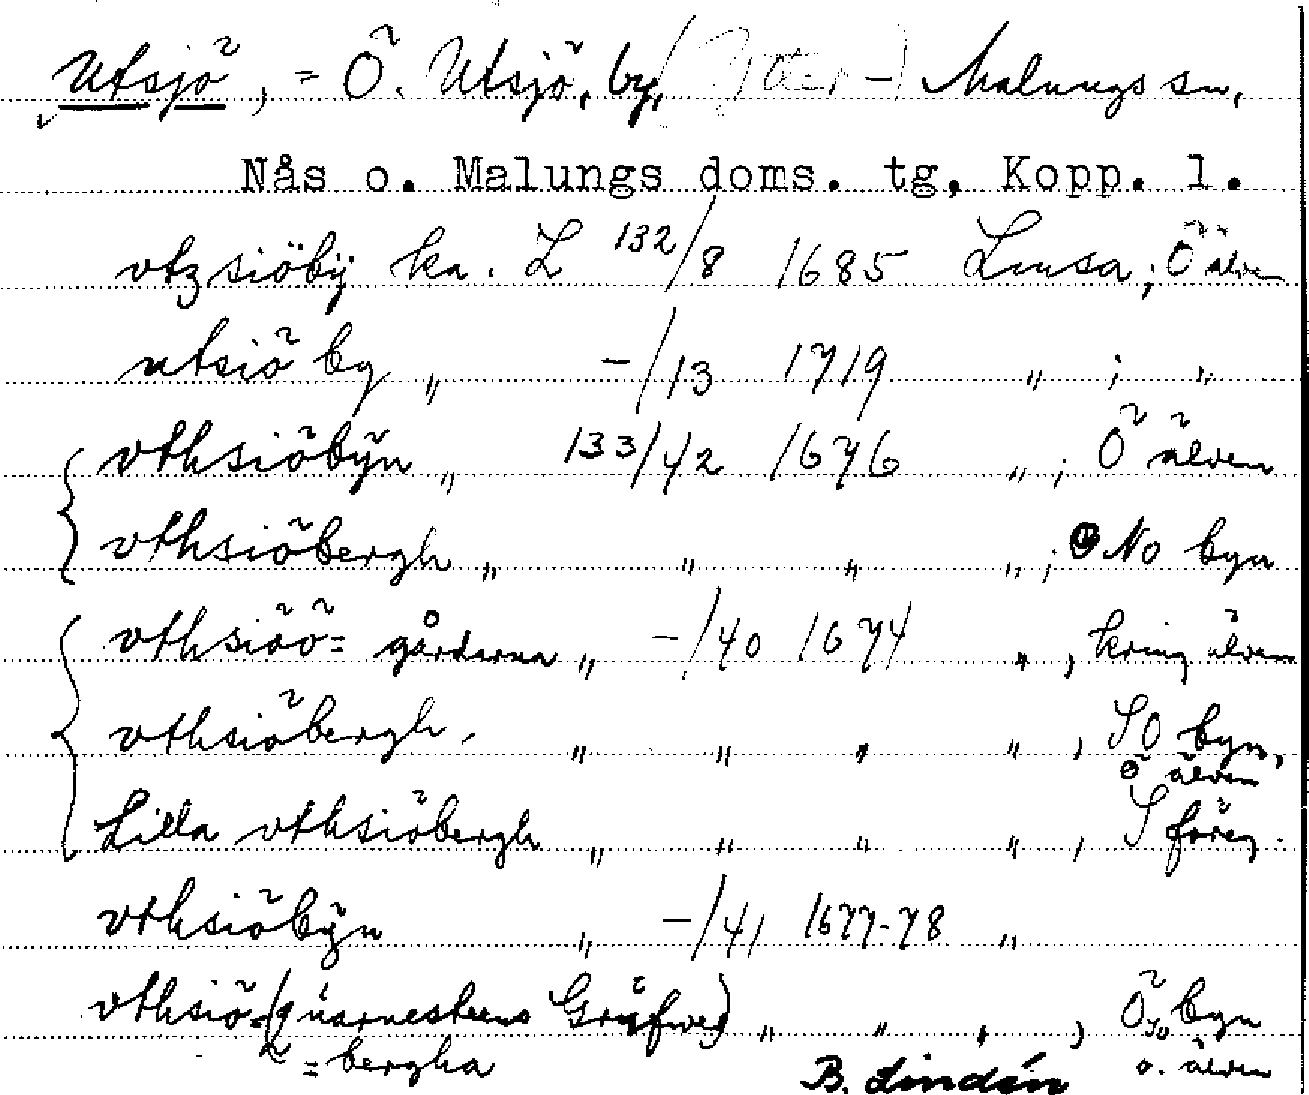 Utsjö, = Ö. Utsjö, by, (Ytter-) Malungs sn,
Nås o. Malungs doms. tg, Kopp. l.
vtzsiöbÿ ka. L 132/8 1685 Lmsa; Ö älven
utsiö by " -/13 1719 " ; "
{ vthsiöbÿn " 133/42 1676 " ; Ö älven
vthsiöbergh " " " " ; NO byn
{ vthsiöö= gårdarna " -/40 1674 " , kring älven
vthsiöbergh, " " " " , SO byn,
ö älven
Lilla vthsiöbergh " " " " , S föreg.
vthsiöbÿn " -/41 1677-78 "
vthsiö=(quarnesteens Gräfwer) " " " , Ö byn
=bergha o. älven
B. Lindén